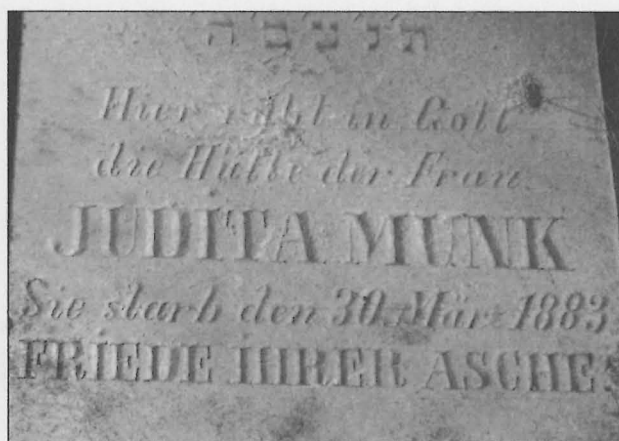 תנצבה
Hier ruht in Gott
die Hülle der Frau
JUDITA MUNK
Sie starb den 30. März 1883
FRIEDE IHRER ASCHE!